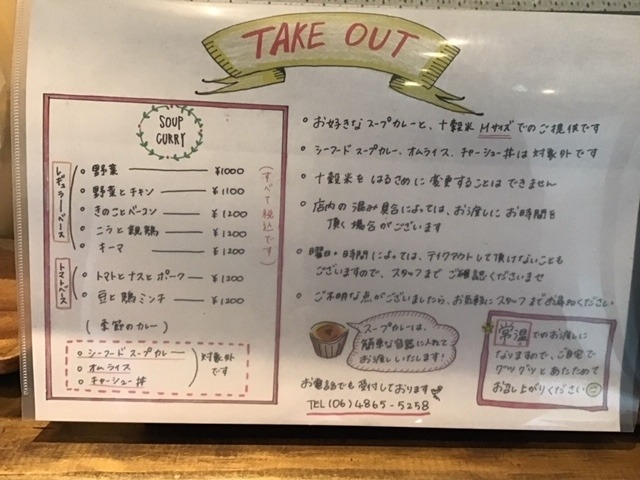 TAKE OUT
SOUP
CURRY
レギュラーベース
野菜 ¥1000
野菜とチキン ¥1100
きのことベーコン ¥1200
ニラと親鶏 ¥1200
キーマ ¥1200
(すべて税込です)
トマトベース
トマトとナスとポーク ¥1200
豆と鶏ミンチ ¥1200
(季節のカレー)
シーフードスープカレー
オムライス
チャーシュー丼
対象外
です
お好きなスープカレーと、十穀米Mサイズでのご提供です
シーフードスープカレー、オムライス、チャーシュー丼は対象外です
十穀米をはるさめに変更することはできません
店内の混み具合によっては、お渡しにお時間を
頂く場合がございます
曜日・時間によっては、テイクアウトして頂けないことも
ございますので、スタッフまでご確認くださいませ
ご不明な点がございましたら、お気軽にスタッフまでお尋ねください
スープカレーは、
簡単な容器に入れて
お渡しいたします!
お電話でも受付しております
TEL(06)4865-5258
常温でのお渡しに
なりますので、ご自宅で
グツグツとあたためて
お召し上がりください